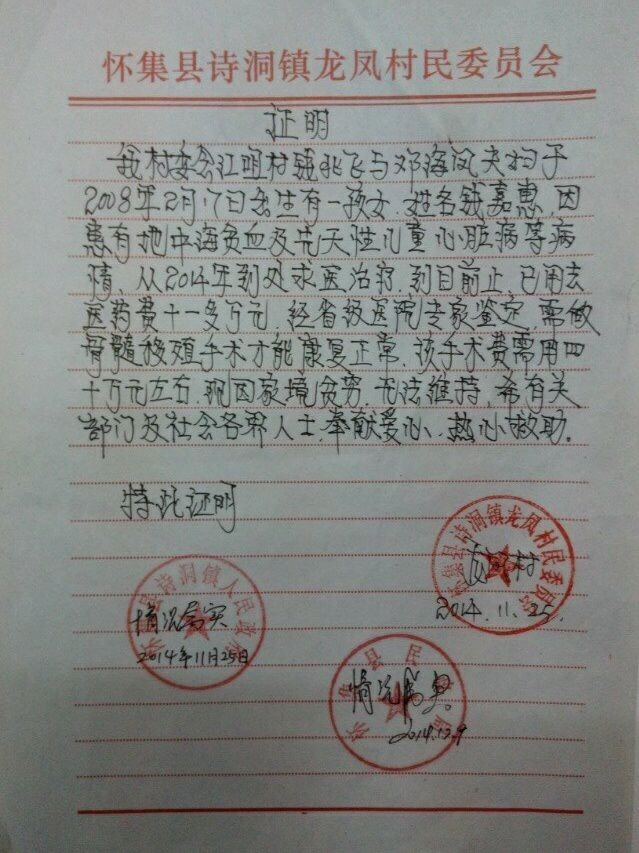 怀集县诗洞镇龙凤村民委员会
证明
我村委会江咀村钱兆飞与邓海凤夫妇于
2008年2月17日出生有一孩女,姓名钱嘉惠,因
患有地中海贫血及先天性儿童心脏病等病
情,从2014年到处求医治疗,到目前止,已用去
医药费十一多万元,经省级医院专家鉴定,需做
骨髓移殖手术才能康复正常,该手术费需用四
十万元左右,现因家境贫穷,无法维持,希有关
部门及社会各界人士,奉献爱心,热心救助。
特此证明
怀集县诗洞镇龙凤村民委员会
村
2014.11.25.
怀集县诗洞镇人民政府
情况属实
2014年11月25日
怀集县民政局
情况属实。
2014.12.9